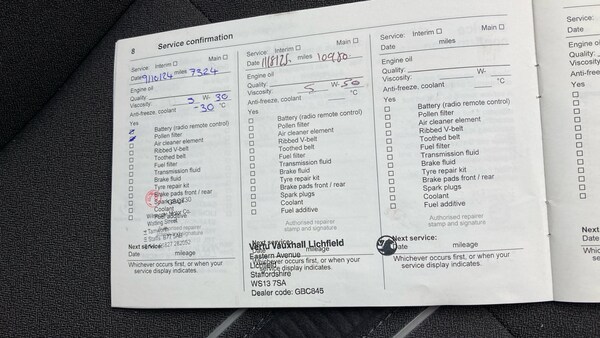 8 Service confirmation
Service: Interim □ Main □
Date 9/10/24 miles 7324
Engine oil
Quality
Viscosity 5 W- 30
Anti-freeze, coolant -30 °C
Yes
□ Battery (radio remote control)
□ Pollen filter
□ Air cleaner element
□ Ribbed V-belt
□ Toothed belt
□ Fuel filter
□ Transmission fluid
□ Brake fluid
□ Tyre repair kit
□ Brake pads front / rear
□ Spark plugs
□ Coolant
□ Fuel additive
Motor Co.
Watling Street
Next service:
Date mileage
Whichever occurs first, or when your
service display indicates.
Service: Interim □ Main □
Date miles 10980
Engine oil
Quality
Viscosity 5 W- 30
Anti-freeze, coolant °C
Yes
□ Battery (radio remote control)
□ Pollen filter
□ Air cleaner element
□ Ribbed V-belt
□ Toothed belt
□ Fuel filter
□ Transmission fluid
□ Brake fluid
□ Tyre repair kit
□ Brake pads front / rear
□ Spark plugs
□ Coolant
□ Fuel additive
Authorised repairer
stamp and signature
Next service:
Vertu Vauxhall Lichfield
Eastern Avenue
Lichfield
Staffordshire
WS13 7SA
Dealer code: GBC845
Date mileage
Whichever occurs first, or when your
service display indicates.
Service: Interim □ Main □
Date miles
Engine oil
Quality
Viscosity W-
Anti-freeze, coolant °C
Yes
□ Battery (radio remote control)
□ Pollen filter
□ Air cleaner element
□ Ribbed V-belt
□ Toothed belt
□ Fuel filter
□ Transmission fluid
□ Brake fluid
□ Tyre repair kit
□ Brake pads front / rear
□ Spark plugs
□ Coolant
□ Fuel additive
Authorised repairer
stamp and signature
Next service:
Date mileage
Whichever occurs first, or when your
service display indicates.
Service:
Date
Engine oil
Quality
Viscosity
Anti-freeze
Yes
Next
Date
Which